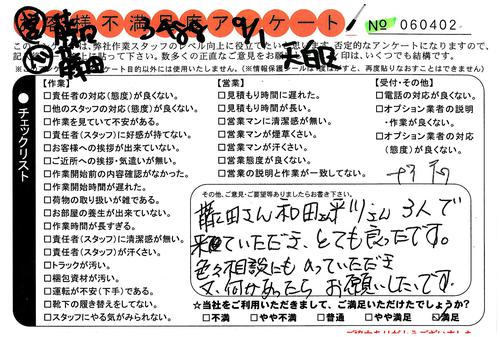 お客様不満足度アンケート
3488 9/1
№ 060402
このアンケートは、弊社作業スタッフのレベル向上に役立てたいと思います。否定的なアンケートになりますので、
アンケート目的以外には使用いたしません。
【作業】
□責任者の対応(態度)が良くない。
□他のスタッフの対応(態度)が良くない。
□作業を見ていて不安がある。
□責任者(スタッフ)に好感が持てない。
□お客様への挨拶が出来ていない。
□ご近所への挨拶・気遣いが無い。
□作業開始前の内容確認がなかった。
□作業開始時間が遅れた。
□荷物の取り扱いが雑である。
□お部屋の養生が出来ていない。
□作業時間が長すぎる。
□責任者(スタッフ)に清潔感が無い。
□責任者(スタッフ)が汗くさい。
□トラックが汚い。
□梱包資材が汚い。
□運転が不安(下手)である。
□靴下の履き替えをしてない。
□スタッフにやる気がみられない。
チェックリスト
【営業】
□見積もり時間に遅れた。
□見積もり時間が長い。
□営業マンに清潔感が無い。
□営業マンが煙草くさい。
□営業マンが汗くさい。
□営業態度が良くない。
□営業の説明と作業が一致してない。
【受付・その他】
□電話の対応が良くない。
□オプション業者の説明
・作業が良くない。
□オプション業者の対応
(態度)が良くない。
その他、ご意見・ご要望等ありましたらお書き下さい。
さん和田さん平川さん3人で
来ていただき、とても良ったです。
色々相談にものっていただき
又、何かあったらお願いしたいです。
☆当社をご利用いただきまして、ご満足いただけたでしょうか?
□不満 □やや不満 □普通 □やや満足 ☑満足